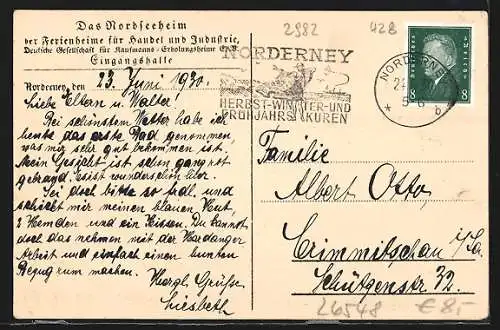 Das Nordseeheim
der Ferienheime für Handel und Industrie,
Deutsche Gesellschaft für Kaufmanns-Erholungsheime E.V.
Eingangshalle
Norderney, den 23. Juni 1930.
Liebe Eltern u. Walter!
Bei schönstem Wetter habe ich
heute das erste Bad genommen,
was mir sehr gut bekommen ist.
Mein Gesicht ist schon ganz rot
gebrannt. Es ist wunderschön hier.
Sei doch bitte so frdl. und
schickt mir meinen blauen Hut,
2 Hemden und ein Kissen. Du kannst
doch das nehmen mit der Hardanger
Arbeit und einfach einen bunten
Bezug rum machen.
Herzl. Grüße
Liesbeth
2982
428
NORDERNEY
HERBST-WINTER-UND
FRÜHJAHRSKUREN
NORDERNEY
b
8 8
Familie
Albert Otto,
Crimmitschau i/Sa.
Schützenstr. 32.
26548 € 8,-